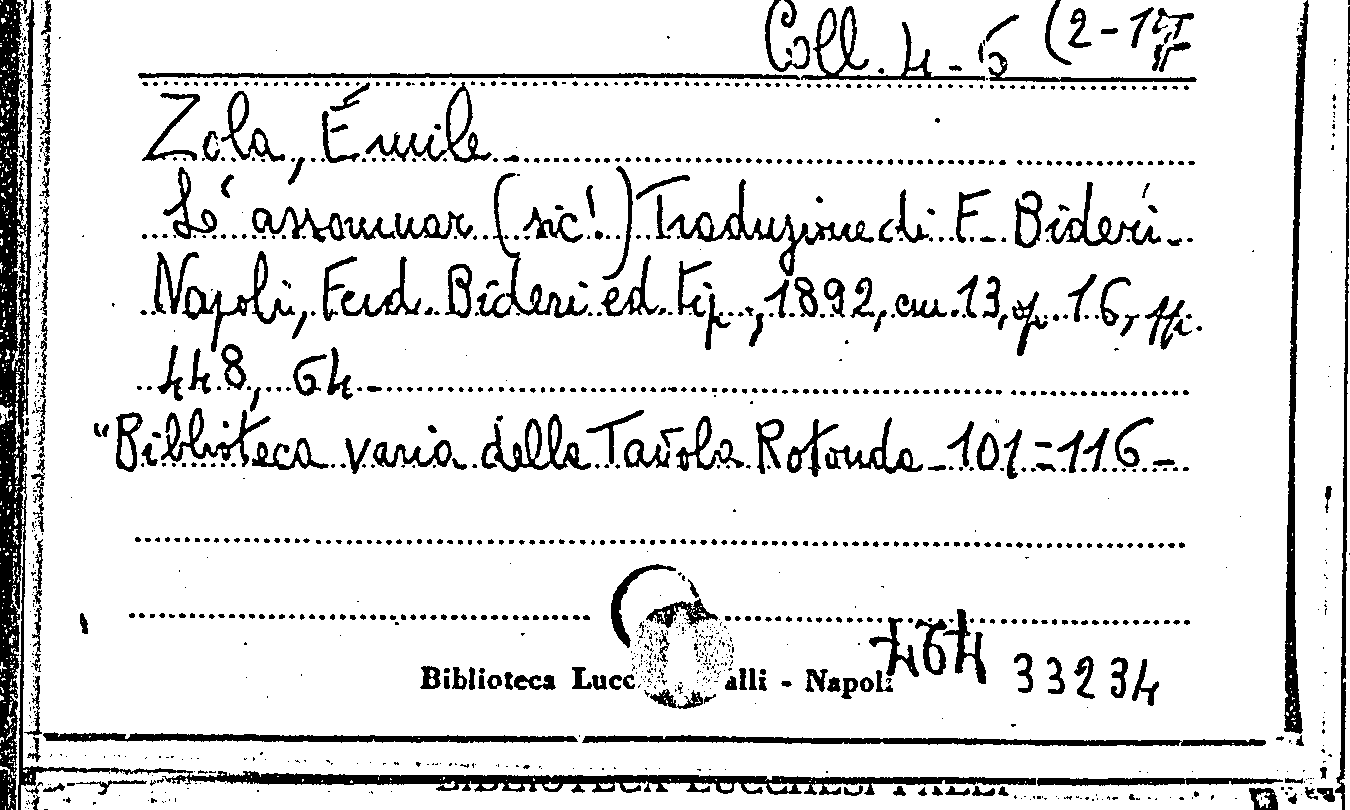 Coll. 4-5 (2-17
Zola, Émile
Lé assommar (sic!) Traduzione di F. Bideri.
Napoli, Ferd. Bideri ed. tip., 1892, cm. 13, op. 16, pp.
448, 64 -
"Biblioteca varia della Tavola Rotonda - 101=116 -
464 33234
Biblioteca Lucc alli - Napoli
BIBLIOTECA LUCCHESI PALLI